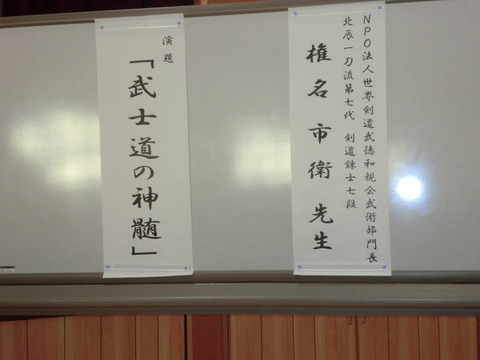 NPO法人世界剣道武徳和親会武術部門長
北辰一刀流第七代 剣道錬士七段
椎名市衛先生
演題
「武士道の神髄」